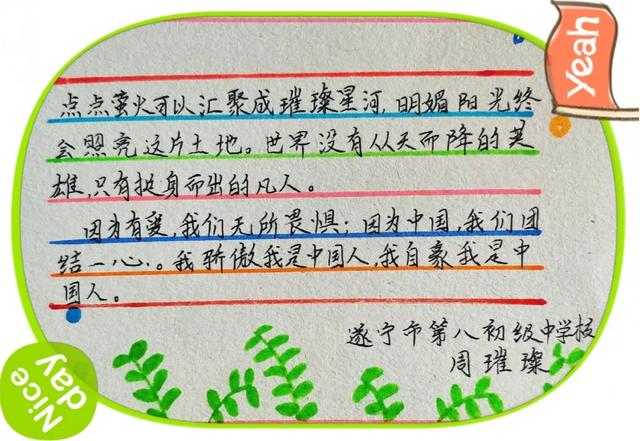 Yeah
点点萤火可以汇聚成璀璨星河,明媚阳光终
会照亮这片土地。世界没有从天而降的英
雄,只有挺身而出的凡人。
因为有爱,我们无所畏惧;因为中国,我们团
结一心。我骄傲我是中国人,我自豪我是中
国人。
遂宁市第八初级中学校
周璀璨
Nice
day